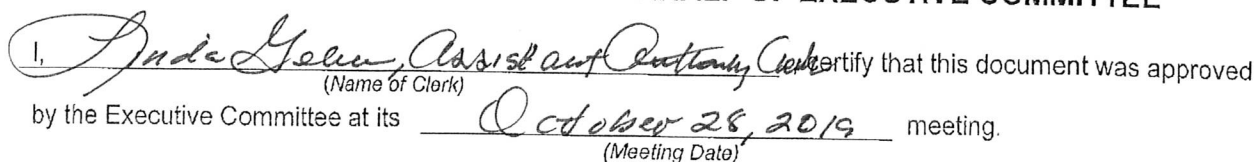 OF EXECUTIVE COMMITTEE
I, Linda Gehm, Assistant Authority Clerk certify that this document was approved
(Name of Clerk)
by the Executive Committee at its October 28, 2019 meeting.
(Meeting Date)